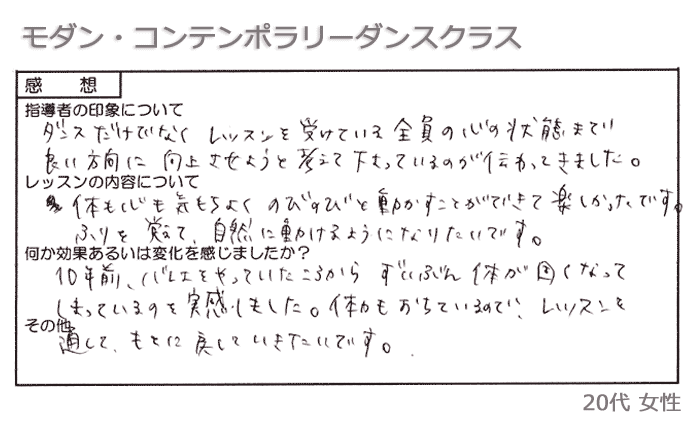 モダン・コンテンポラリーダンスクラス
感 想
指導者の印象について
ダンスだけでなく レッスンを 受けている 全員の心の状態まで
良い方向に 向上させようと考えて下さっているのが伝わってきました。
レッスンの内容について
体も心も気もちよく のびのびと動かすことができて楽しかったです。
ふりを覚えて、自然に動けるようになりたいです。
何か効果あるいは変化を感じましたか？
10年前、バレエをやっていたころから ずいぶん体が固くなって
しまっているのを実感しました。体力もおちているので、レッスンを
その他
通して、もとに戻していきたいです。
20代 女性